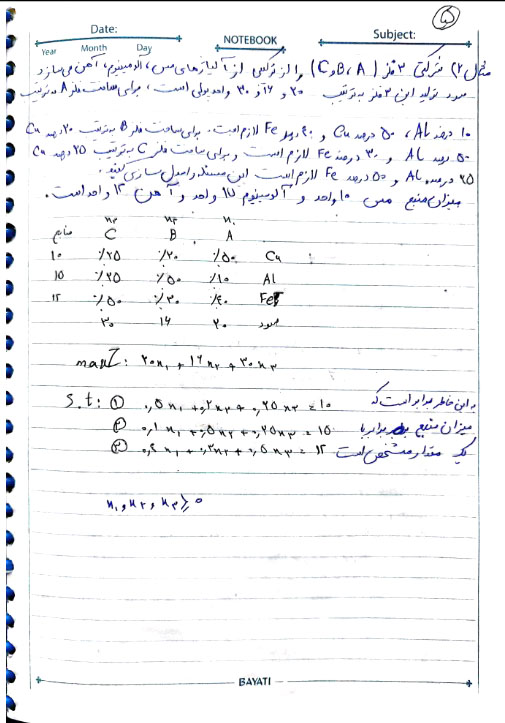 ۵
Date:
Year Month Day
NOTEBOOK
Subject:
مثال ۲) شرکتی ۳ فلز (A، B و C) را از ترکیبی از آلیاژهای مس، آلومینیوم، آهن می‌سازد
سود تولید این ۳ فلز به ترتیب ۲۰ و ۱۶ و ۳۰ واحد پولی است، برای ساخت فلز A به ترتیب
۵۰ درصد Cu و ۱۰ درصد Al، ۴۰ درصد Fe لازم است. برای ساخت فلز B به ترتیب ۲۰ درصد Cu
۵۰ درصد Al و ۳۰ درصد Fe لازم است و برای ساخت فلز C به ترتیب ۲۵ درصد Cu
۲۵ درصد Al و ۵۰ درصد Fe لازم است این مسئله را مدل سازی کنید.
میزان منبع مس ۱۰ واحد و آلومینیوم ۱۵ واحد و آهن ۱۲ واحد است.
x₃ x₂ x₁
منابع C B A
۱۰ ٪۲۵ ٪۲۰ ٪۵۰ Cu
۱۵ ٪۲۵ ٪۵۰ ٪۱۰ Al
۱۲ ٪۵۰ ٪۳۰ ٪۴۰ Fe
۳۰ ۱۶ ۲۰ سود
max Z: ۲۰x₁ + ۱۶x₂ + ۳۰x₃
s.t: ① ۰,۵x₁ + ۰,۲x₂ + ۰,۲۵x₃ = ۱۰ به این خاطر برابر است که
② ۰,۱x₁ + ۰,۵x₂ + ۰,۲۵x₃ = ۱۵ میزان منبع برابر با
③ ۰,۴x₁ + ۰,۳x₂ + ۰,۵x₃ = ۱۲ یک مقدار مشخص است
x₁, x₂, x₃ ≥ ۰
BAYATI